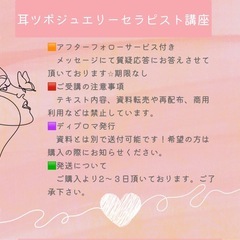 耳ツボジュエリーセラピスト講座
🟧アフターフォローサービス付き
メッセージにて質疑応答にお答えさせて
頂いております☆期限なし
🟥ご受講の注意事項
テキスト内容、資料転売や再配布、商用
利用などは禁止しています。
🟪ディプロマ発行
資料とは別で送付可能です！希望の方は
購入の際にお知らせください。
🟩発送について
ご購入より2～3日頂いております。ご了
承下さい。